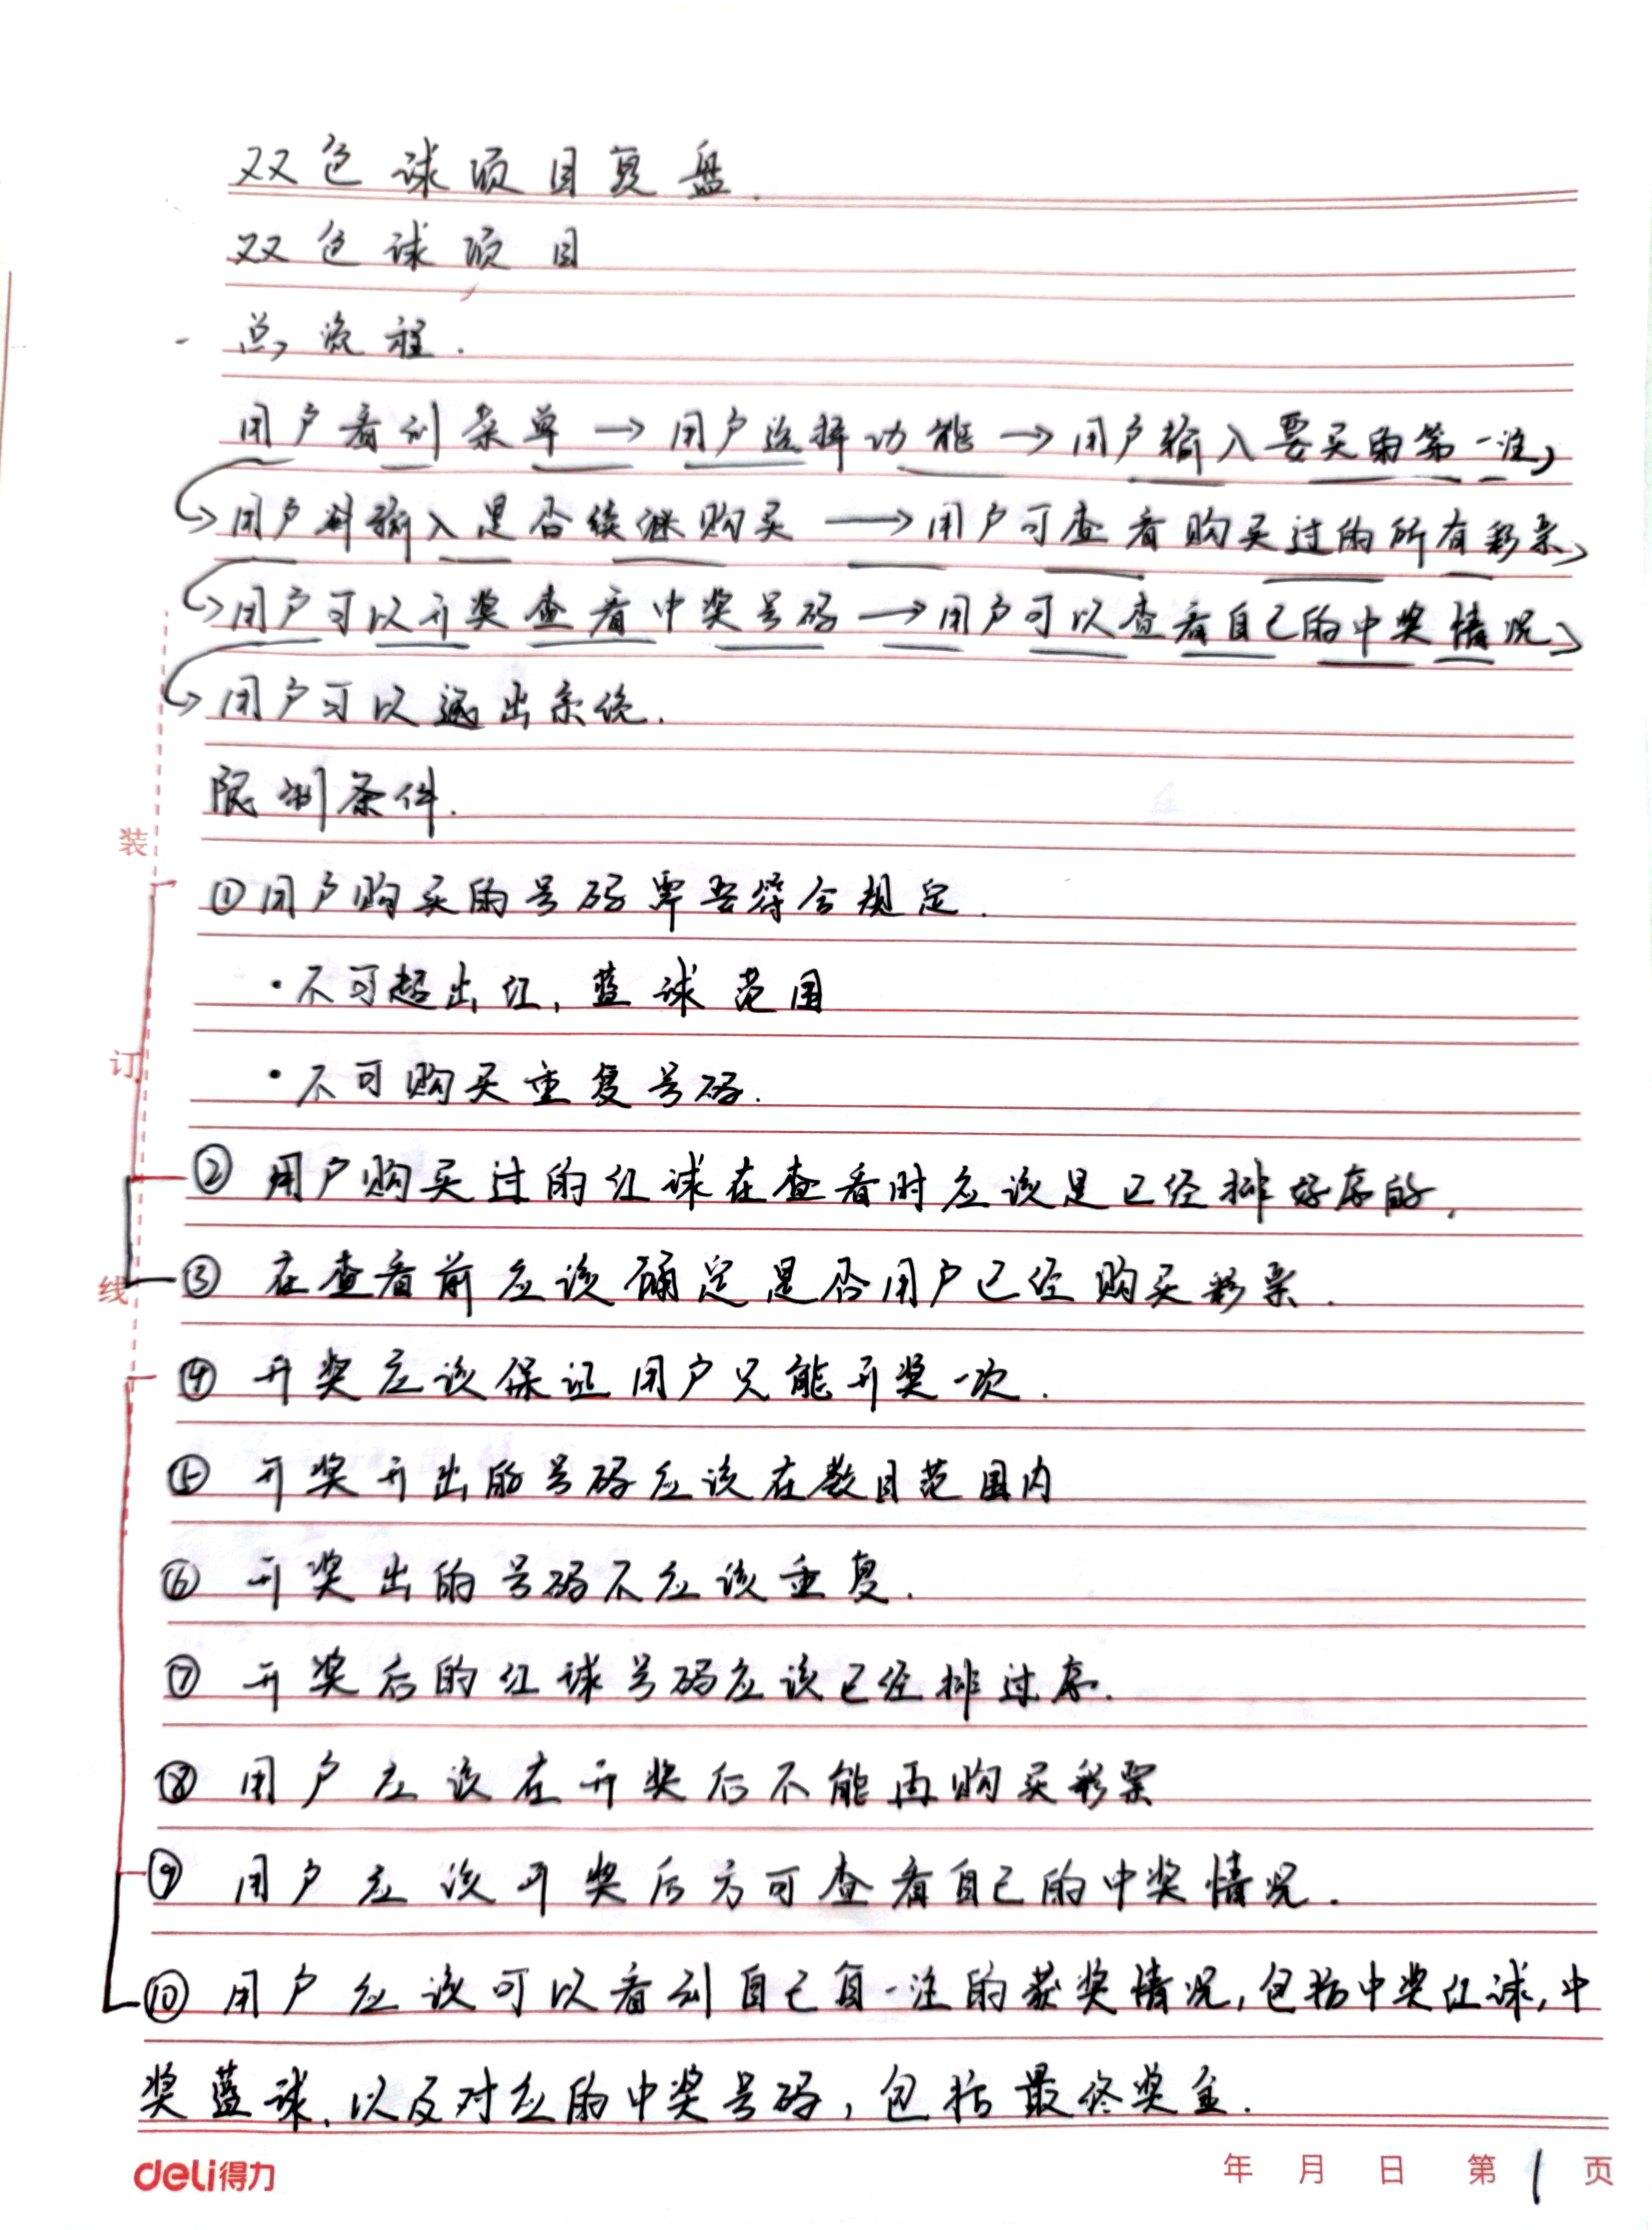 双色球项目复盘.
双色球项目
- 总流程.
用户看到菜单 → 用户选择功能 → 用户输入要买的第一注
→用户输入是否续继购买 → 用户可查看购买过的所有彩票
→用户可以开奖查看中奖号码 → 用户可以查看自己的中奖情况
→用户可以退出系统.
限制条件.
①用户购买的号码要符合规定.
·不可超出红,蓝球范围
·不可购买重复号码.
② 用户购买过的红球在查看时应该是已经排好序的.
③ 在查看前应该确定是否用户已经购买彩票.
④ 开奖应该保证用户只能开奖一次.
⑤ 开奖开出的号码应该在数目范围内
⑥ 开奖出的号码不应该重复.
⑦ 开奖后的红球号码应该已经排过序.
⑧ 用户应该在开奖后不能再购买彩票
⑨ 用户应该开奖后方可查看自己的中奖情况.
⑩ 用户应该可以看到自己每一注的获奖情况,包括中奖红球,中
奖蓝球,以及对应的中奖号码,包括最终奖金.
装
订
线
deli得力
年 月 日 第 1 页